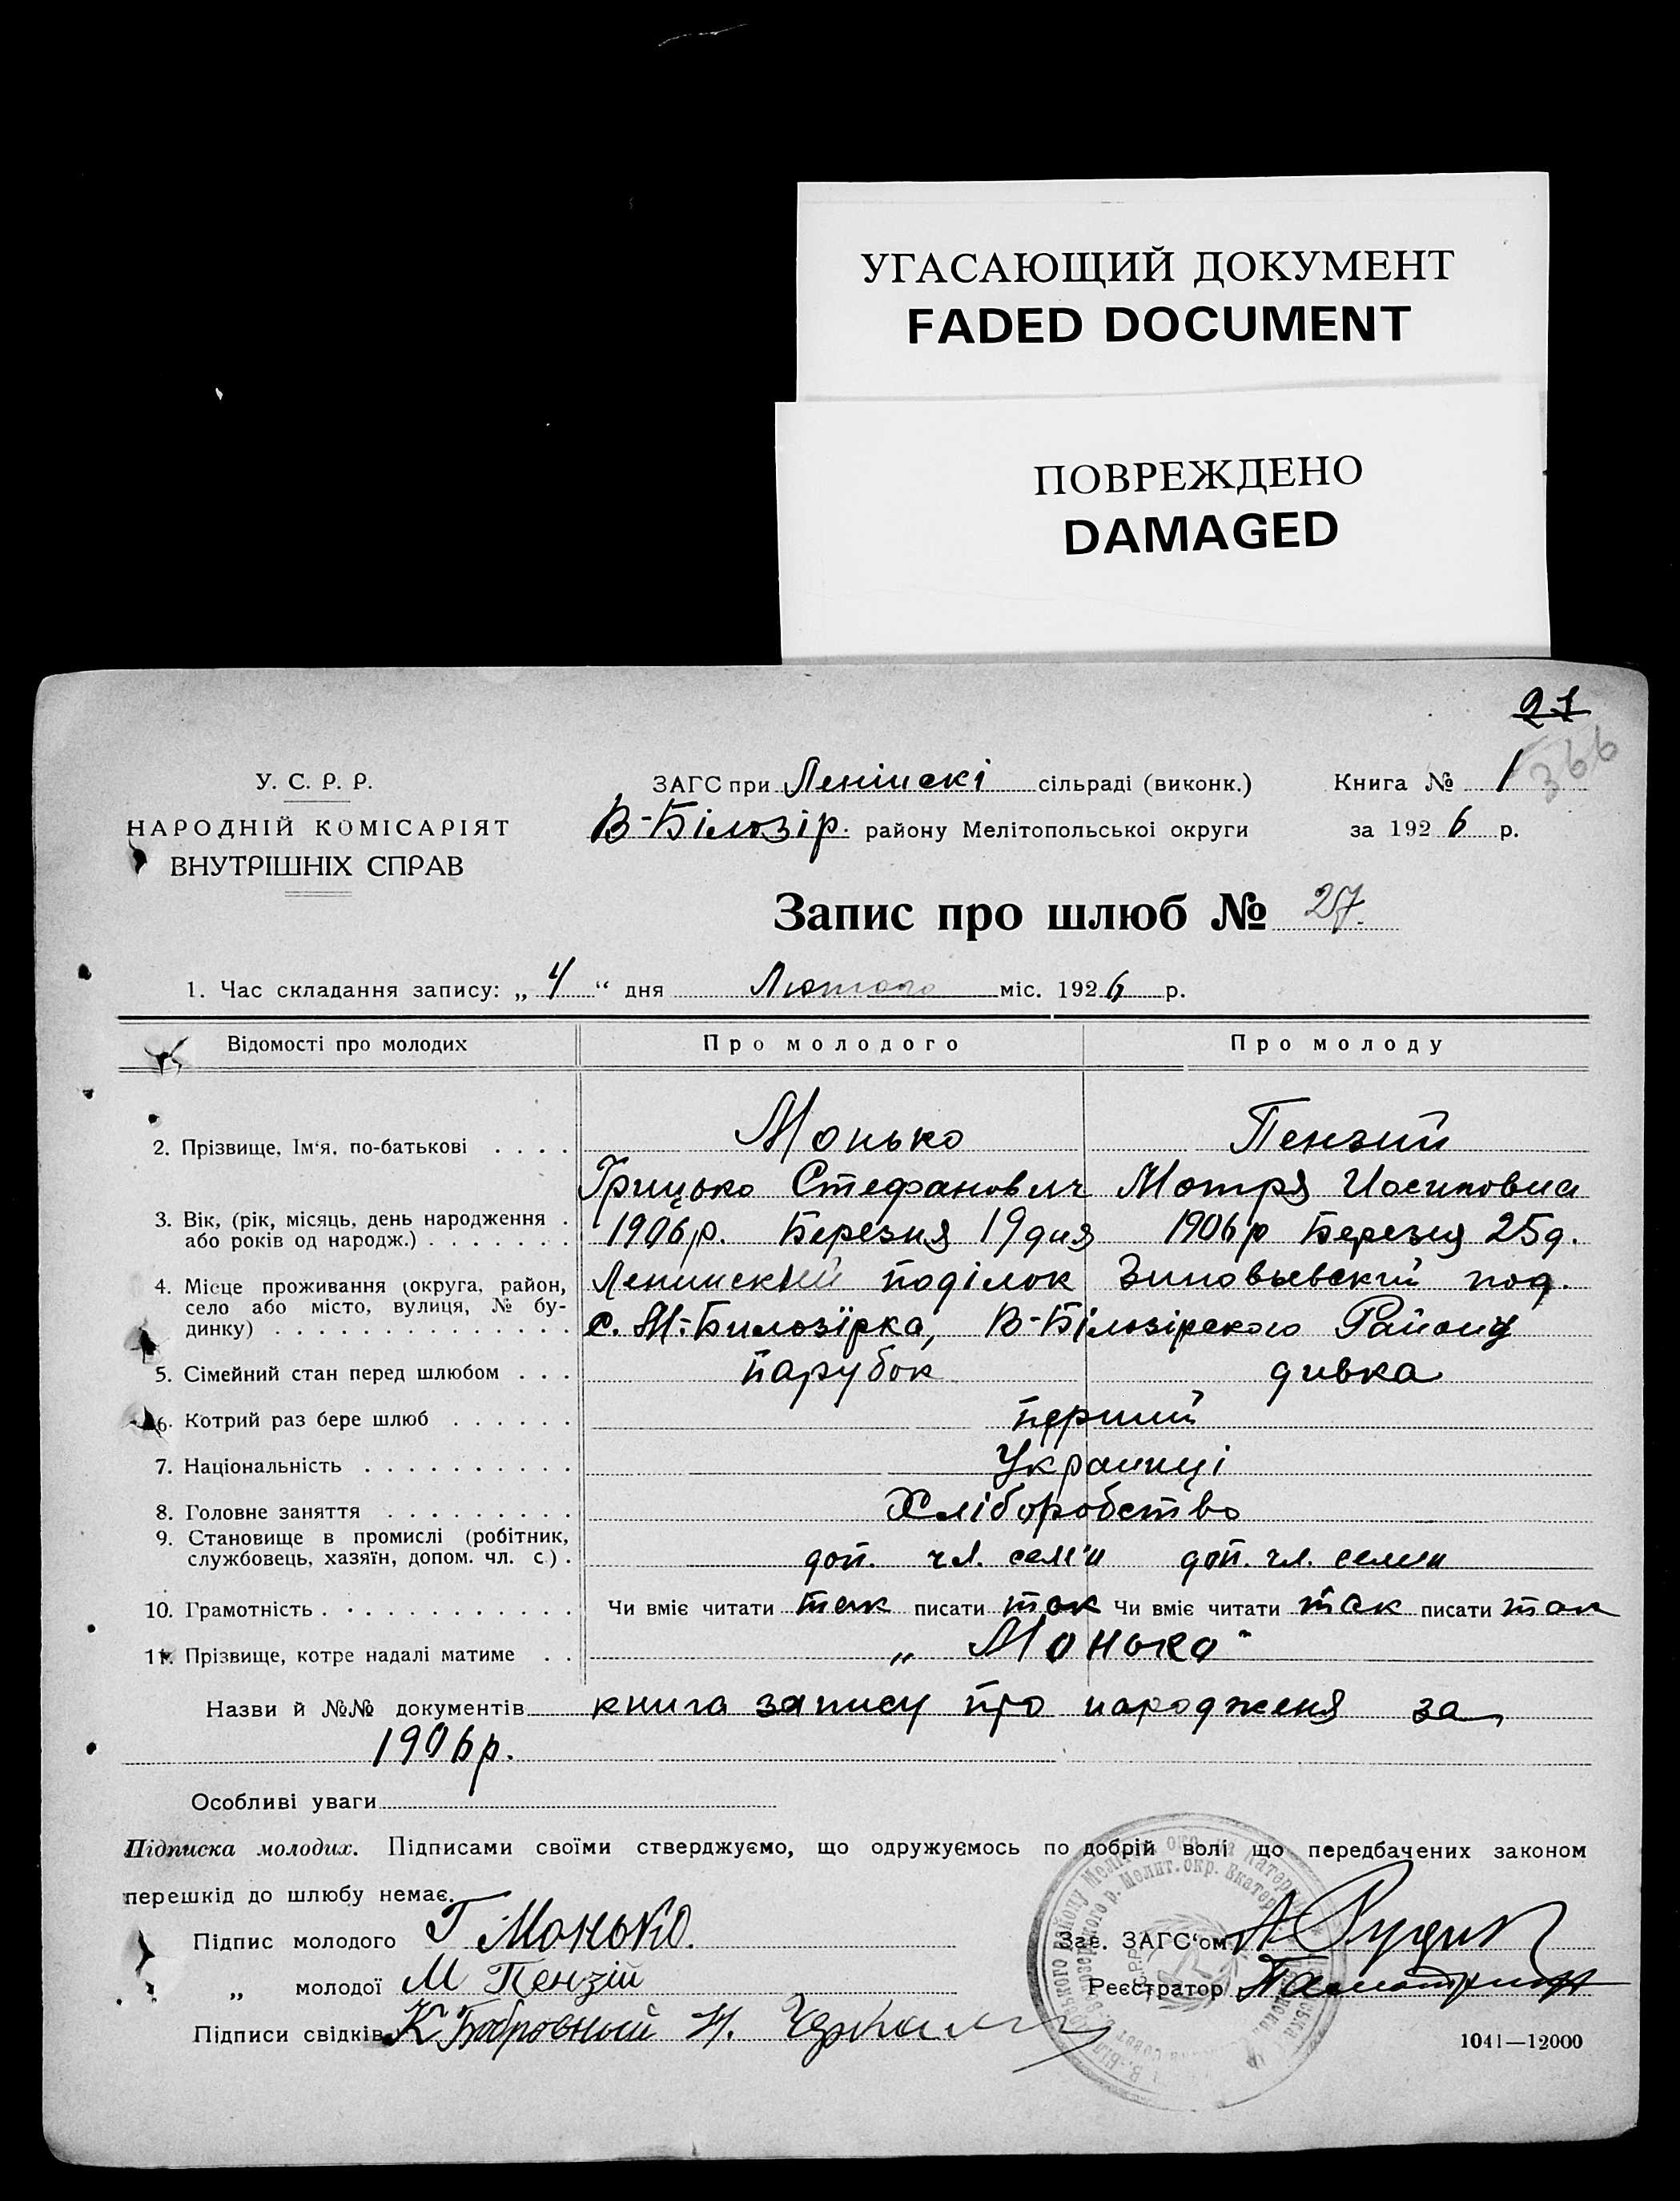 УГАСАЮЩИЙ ДОКУМЕНТ
FADED DOCUMENT
ПОВРЕЖДЕНО
DAMAGED
21
366
У. С. Р. Р.
НАРОДНІЙ КОМІСАРІЯТ
ВНУТРІШНІХ СПРАВ
ЗАГС при Ленінскі сільраді (виконк.) Книга № 1
В-Білозір. району Мелітопольської округи за 1926 р.
Запис про шлюб № 27.
1. Час складання запису: „ 4 “ дня Лютого міс. 1926 р.
Відомості про молодих Про молодого Про молоду
2. Прізвище, Ім‘я, по-батькові . . . . Монько Пензий
Грицько Стефанович Мотря Иосиповна
3. Вік, (рік, місяць, день народження .
або років од народж.) . . . . . . . 1906р. Березня 19 дня 1906р Березня 25д.
4. Місце проживання (округа, район, Ленинский поділок Зиновьевский под.
село або місто, вулиця, № бу-
динку) . . . . . . . . . . . . . . с. М-Билозірка, В-Білозірского Району
5. Сімейний стан перед шлюбом . . . парубок дивка
6. Котрий раз бере шлюб . . . . . . перший
7. Національність . . . . . . . . . . Украинці
8. Головне заняття . . . . . . . . . Хліборобство
9. Становище в промислі (робітник,
службовець, хазяїн, допом. чл. с.) . доп. чл. сем'и доп. чл. семии
10. Грамотність . . . . . . . . . . . . Чи вміє читати так писати так Чи вміє читати так писати так
11. Прізвище, котре надалі матиме . . „ Монько "
Назви й №№ документів книга запису про народженя за
1906р.
Особливі уваги
Підписка молодих. Підписами своїми стверджуємо, що одружуємось по добрій волі що передбачених законом
перешкід до шлюбу немає.
Підпис молодого Г Монько. Зав. ЗАГС‘ом
„ молодої М Пензій Реєстратор
Підписи свідків К Бобровный Н.
1041—12000